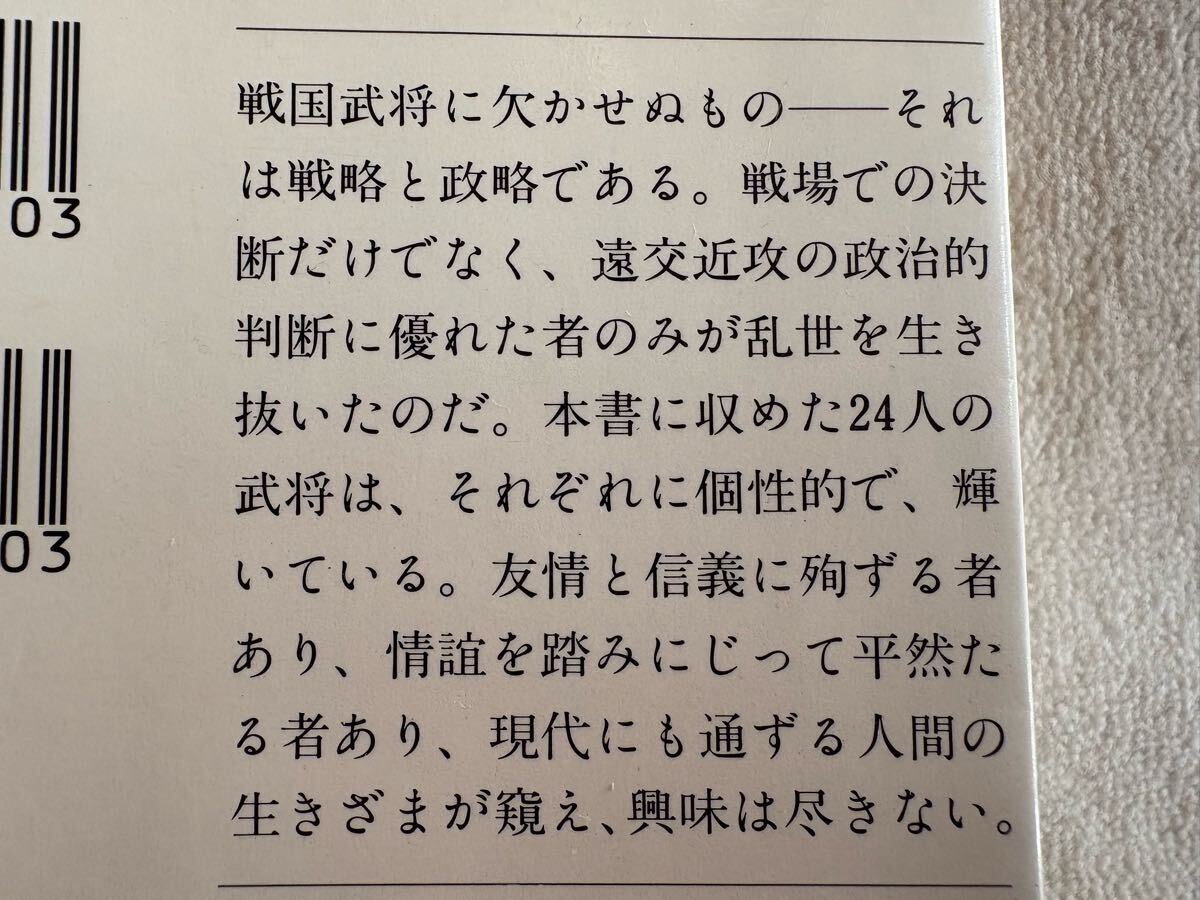 戦国武将に欠かせぬもの――それ
は戦略と政略である。戦場での決
断だけでなく、遠交近攻の政治的
判断に優れた者のみが乱世を生き
抜いたのだ。本書に収めた24人の
武将は、それぞれに個性的で、輝
いている。友情と信義に殉ずる者
あり、情誼を踏みにじって平然た
る者あり、現代にも通ずる人間の
生きざまが窺え、興味は尽きない。
03
03